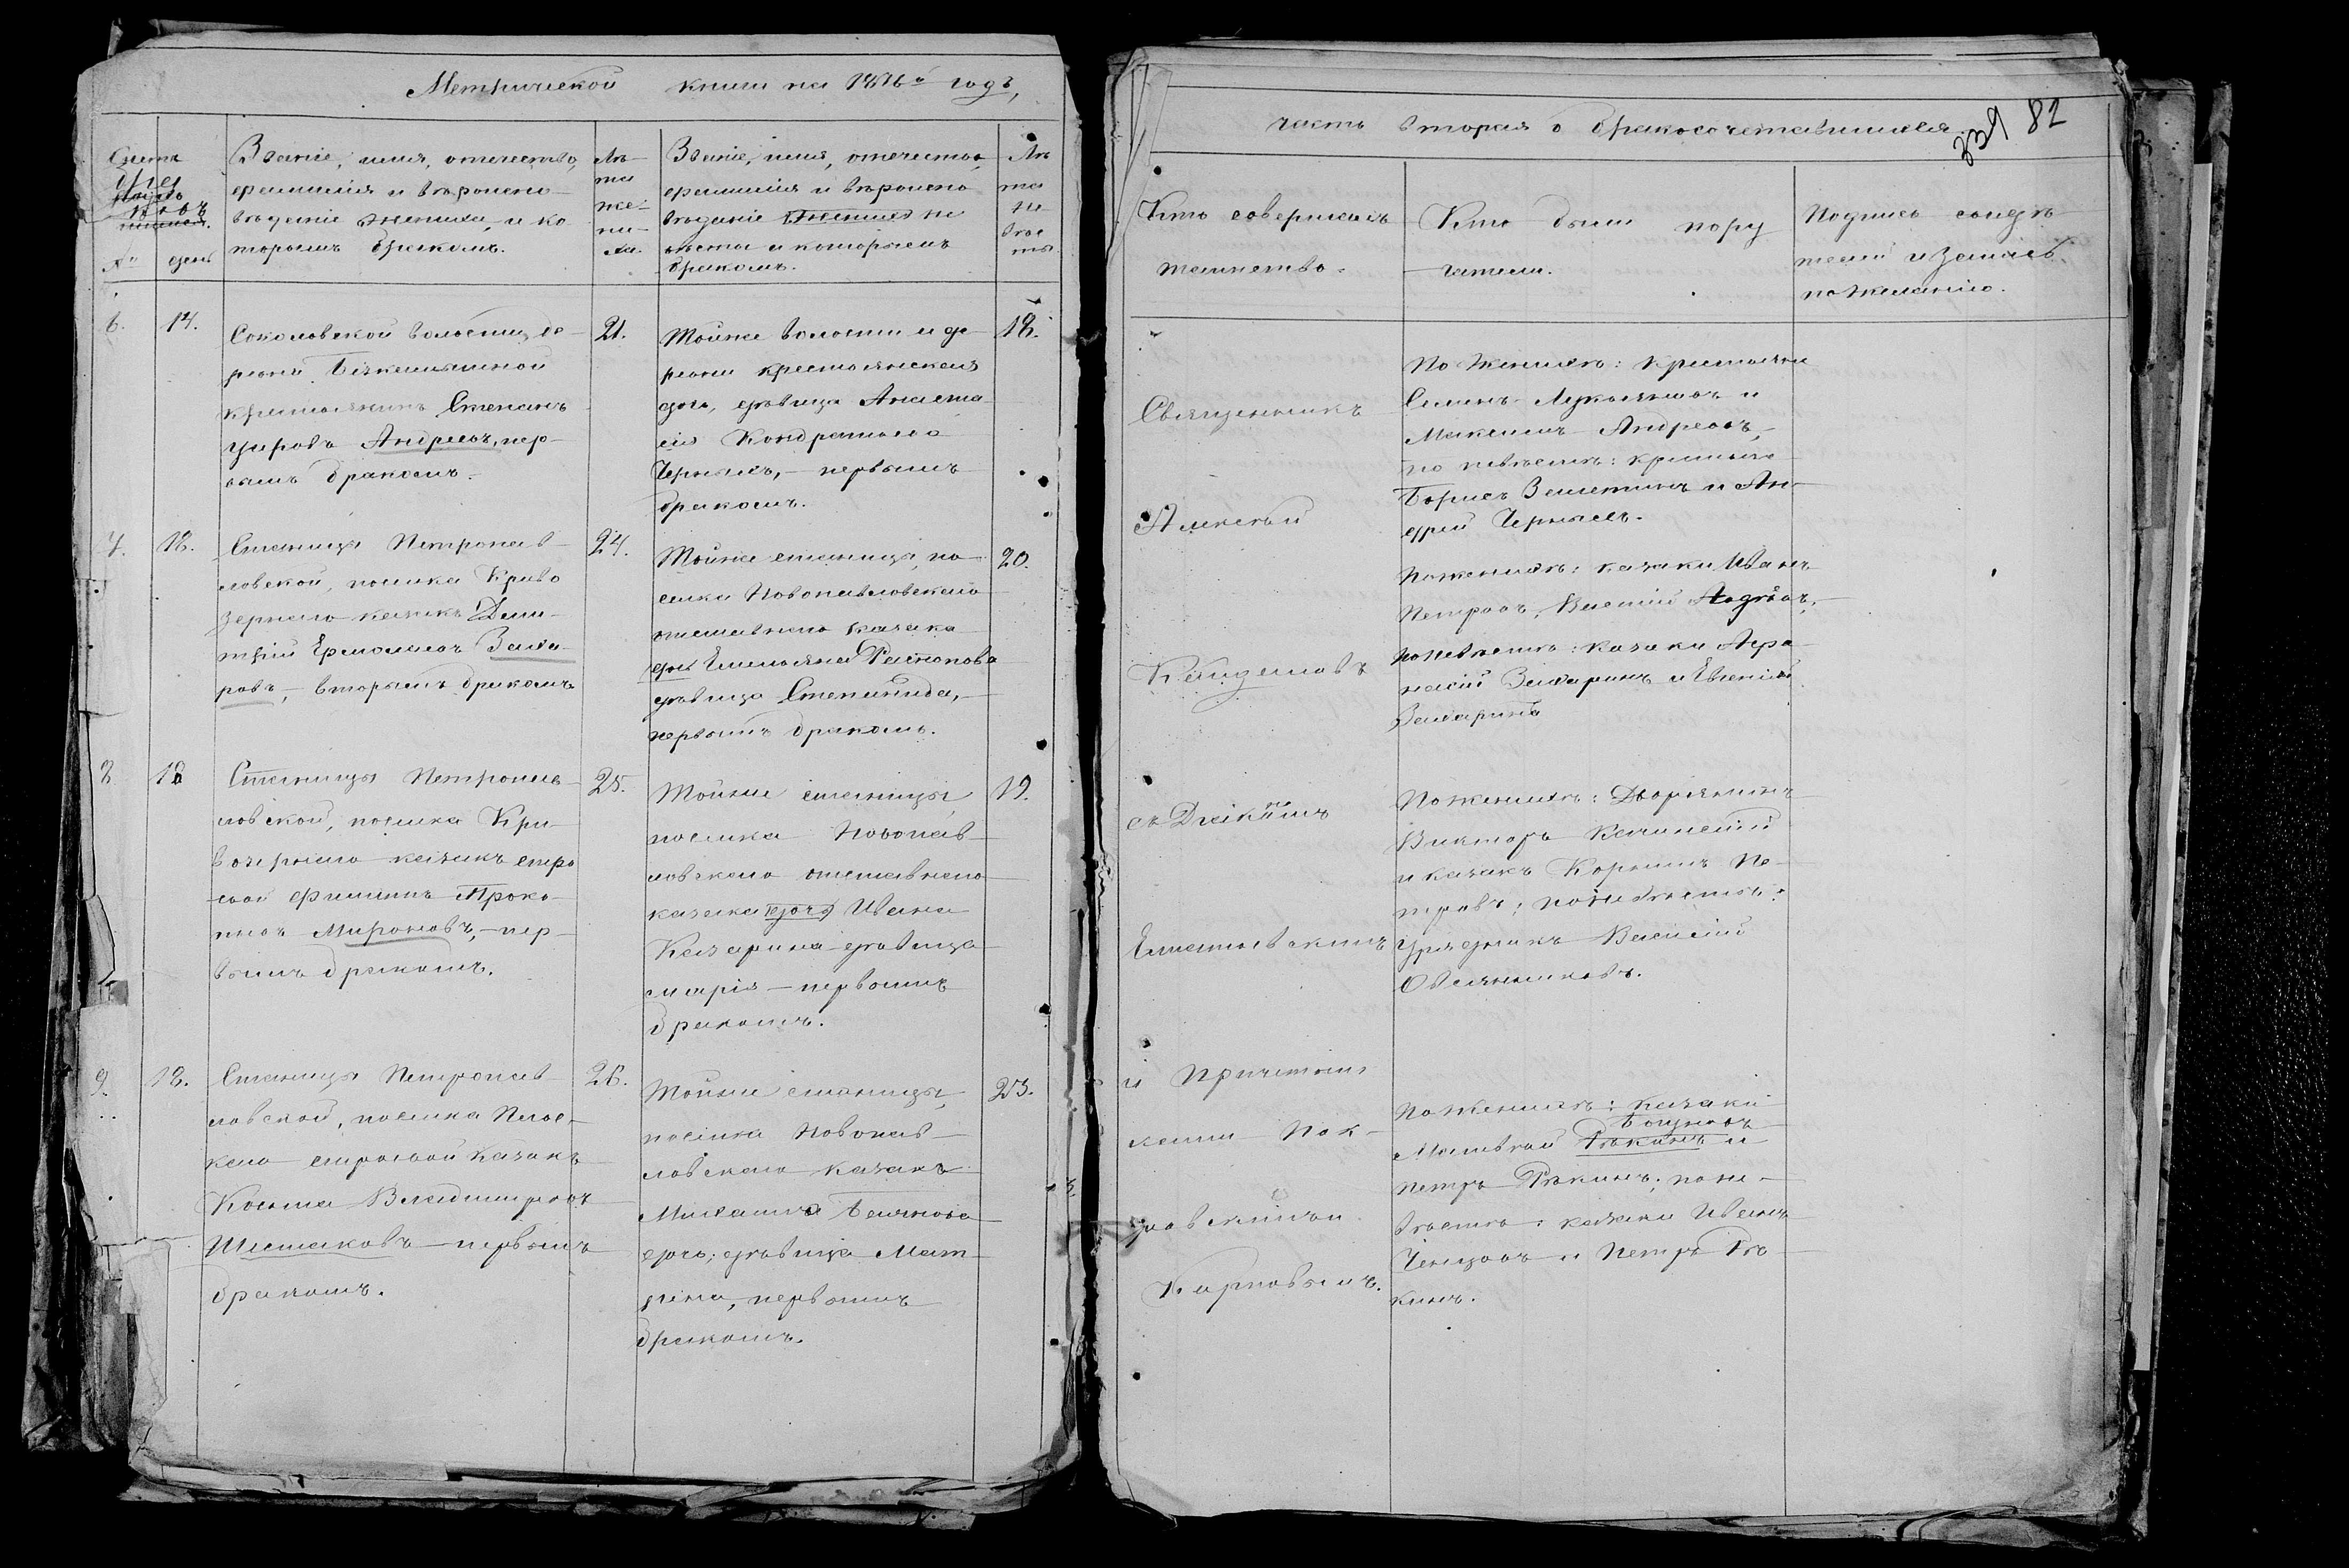 Метрической книги на 1876й годъ,
Звание, имя, отчество,
фамилия и вѣроиспо-
вѣдание жениха, и ко
торымъ бракомъ.
Лѣ-
та
же-
ни-
ха.
Звание, имя, отчество,
фамилия и вѣроиспо
вѣдание жениха не
вѣсты и которымъ
бракомъ.
Лѣ
та
не
вѣс
ты
№ день
6. 14.
Соколовской волости, де-
ревни
крестьянинъ Степанъ
Андреевъ, пер-
вымъ бракомъ.
21.
Тойже волости и де-
ревни крестьянская
дочь, дѣвица Анаста-
сия Кондратьева
Черныхъ, – первымъ
бракомъ.
18.
7. 18.
Станицы Петропав-
ловской, поселка Криво
зернаго казакъ Дми-
трий Ермолаевъ Заха-
ровъ, – вторымъ бракомъ
24.
Тойже станицы, по-
селка Новопавловскаго
отставнаго казака
Емельяна Распопова
дѣвица Степанида, –
первымъ бракомъ.
20.
8 18
Станицы Петропав-
ловской, поселка Кри-
возернаго казакъ стро
евой Филиппъ Проко-
пьевъ Мироновъ, – пер-
вымъ бракомъ.
25.
Тойже станицы
поселка Новопав-
ловскаго отставнаго
казака дочь Ивана
Качарина дѣвица
Мария – первымъ
бракомъ.
19.
9. 18.
Станицы Петропав-
ловской, поселка Плос-
каго строевой казакъ
Косьма Владимировъ
Шестаковъ – первымъ
бракомъ.
26.
Тойже станицы,
поселка Новопав-
ловскаго казака
Михаила
дочь, дѣвица Мат-
рена, первымъ
бракомъ.
23.
часть вторая о бракосочетавшихся.
82
Кто совершалъ
таинство.
Кто были пору
чители.
Подпись свидѣ
телей и запись
по желанию.
Священникъ
Алексей
съ Диакономъ
и Причетни
ками Пок-
ровскимъ и
Карповымъ.
По женихѣ: крестьяне
Семенъ Лукьяновъ и
Максимъ Андреевъ, –
по невѣстѣ: крестьяне
Борисъ и Ан-
дрей Черныхъ.
По женихѣ: казаки Иванъ
Петровъ, Василий
по невѣстѣ: казаки Афа-
насий Захаринъ и Евгений
Захаринъ
По женихѣ: Дворянинъ
Викторъ
и казакъ Корнилъ Пе-
тровъ; по невѣстѣ:
Урядникъ Василий
Овсянниковъ.
По женихѣ: казаки
Матвѣй Рѣкинъ и
Петръ Рѣкинъ; по не-
вѣстѣ: казаки Иванъ
Ченцовъ и Петръ Рѣ-
кинъ.